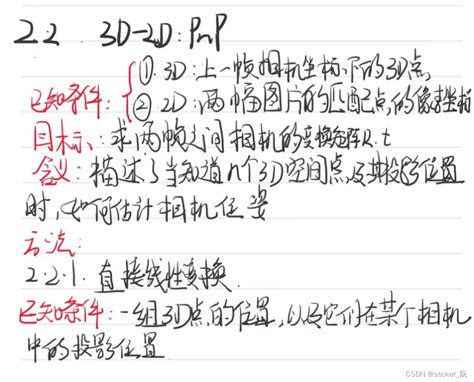 2.2 3D-2D: PnP
已知条件: ① 3D: 上一帧相机坐标下的3D点
② 2D: 两幅图片的匹配点的像素坐标
目标: 求两帧之间相机的变换矩阵R.t
含义: 描述了当知道n个3D空间点及其投影位置
时,如何估计相机位姿
方法:
2.2.1. 直接线性变换
已知条件: 一组3D点的位置,以及它们在某个相机
中的投影位置
CSDN @sticker_阮